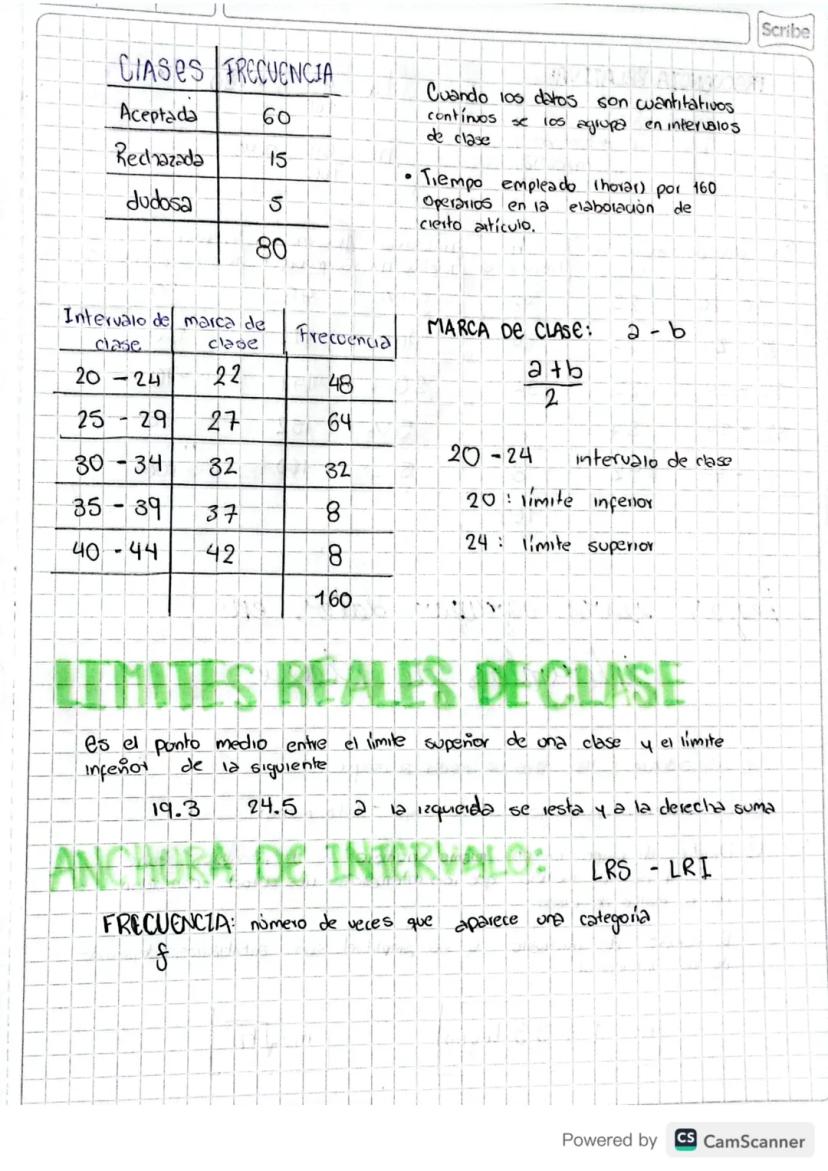 Scribe
Clases FRECUENCIA
Aceptada 60
Rechazada 15
dudosa 5
80
Cuando los datos son cuantitativos
contínuos se los agrupa en intervalos
de clase
• Tiempo empleado (horas) por 160
operarios en la elaboración de
cierto artículo.
Intervalo de clase marca de clase Frecuencia
20 - 24 22 48
25 - 29 27 64
30 - 34 32 32
35 - 39 37 8
40 - 44 42 8
160
MARCA DE CLASE: a - b
a + b
2
20 - 24 intervalo de clase
20 : límite inferior
24 : límite superior
LIMITES REALES DE CLASE
es el punto medio entre el límite superior de una clase y el límite
inferior de la siguiente
19.3 24.5 a la izquierda se resta y a la derecha suma
ANCHURA DE INTERVALO: LRS - LRI
FRECUENCIA: número de veces que aparece una categoría
f
Powered by CS CamScanner